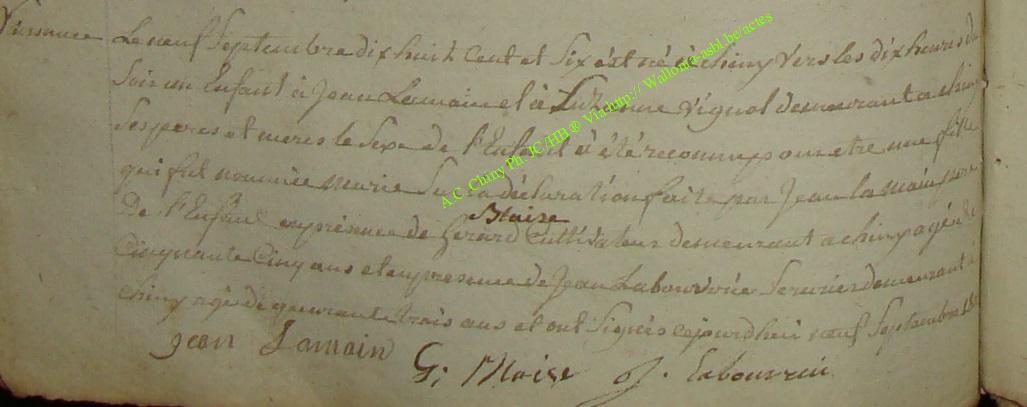 Naissance Le neuf Septembre dix huit Cent et Six est né à chiny vers les dix heures du
Soir un Enfant à Jean Lamain et à Suzanne vignol demeurant a chiny
Ses peres et meres le Sexe de l'Enfant à été reconnu pour etre une fille
qui fut nommée marie Sur la déclaration faite par Jean la main pere
Blaise
De l'Enfant en présence de Gerard Cultivateur demeurant a chiny agée de
Cinquante Cinq ans et en presence de Jean Labourrie Serurier demeurant à
chiny agé de quarante trois ans et ont Signés cejourdhui neuf Septembre
jean Lamain G: Blaise J. Labourrii
A.C. Chiny Ph. JC/HB® Via http://Wallonia-asbl.be/actes